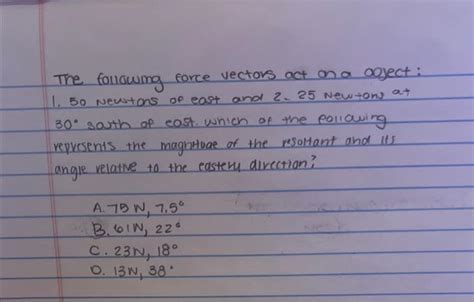 The following force vectors act on a object:
1. 50 Newtons of east and 2. 25 Newtons at
30° south of east. which of the following
represents the magnitude of the resoltant and its
angle relative to the eastern direction?
A. 75 N, 7.5°
B. 61N, 22°
C. 23N, 18°
D. 13N, 38°